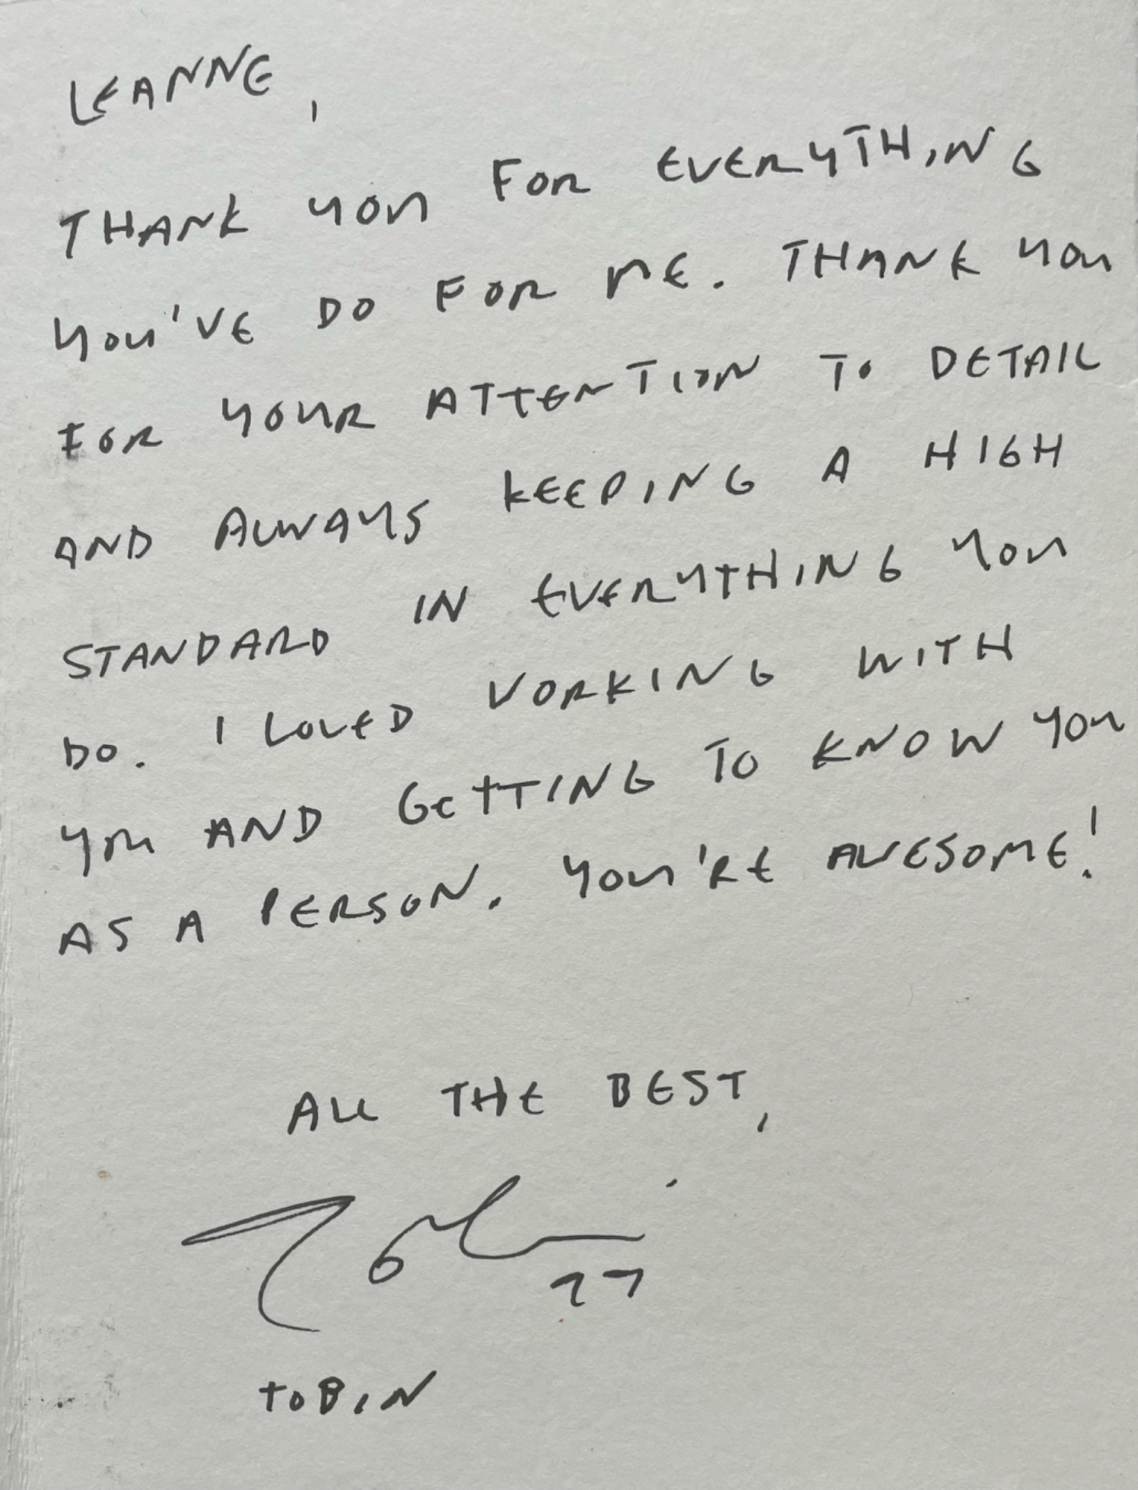 LEANNE,
THANK YOU FOR EVERYTHING
YOU'VE DO FOR ME. THANK YOU
FOR YOUR ATTENTION TO DETAIL
AND ALWAYS KEEPING A HIGH
STANDARD IN EVERYTHING YOU
DO. I LOVED WORKING WITH
YOU AND GETTING TO KNOW YOU
AS A PERSON. YOU'RE AWESOME!
ALL THE BEST,
Tobin
77
TOBIN